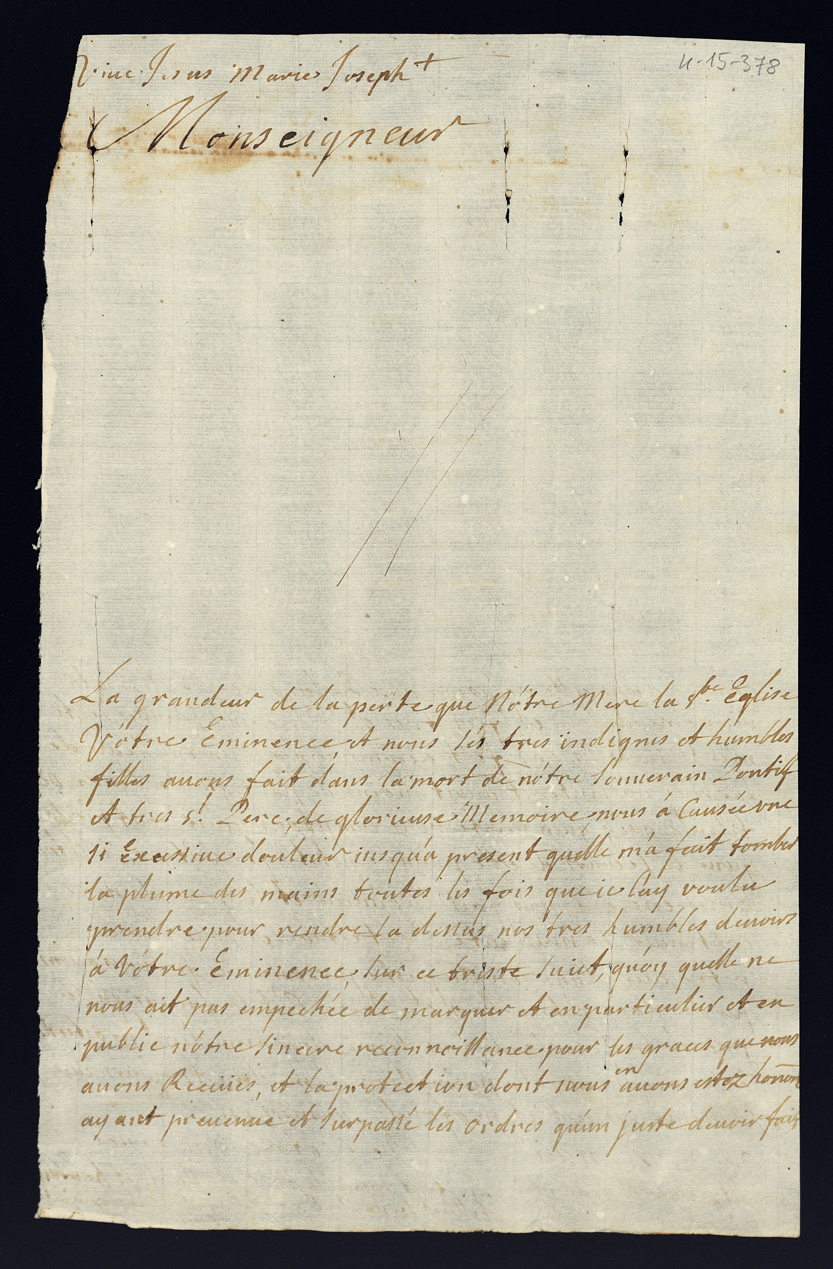 Viue Jesus Marie Joseph +
4-15-378
Monseigneur
La grandeur de la perte que Nôtre Mere la Ste. Eglise
Vôtre Eminence, et nous les tres indignes et humbles
filles auons fait dans la mort de nôtre souuerain Pontif
et tres St. Pere, de glorieuse Memoire nous à Causée vne
si Excessiue douleur iusqu'a present quelle m'a fait tomber
la plume des mains toutes les fois que ie l'ay voulu
prendre pour rendre la dessus nos tres humbles deuoirs
à Vôtre Eminence, sur ce triste suiet, quoy quelle ne
nous ait pas empechée de marquer et en particulier et en
public nôtre sincere reconnoissance pour les graces que nous
auons Receües, et la protection dont nous en auons estez honoré
ayant preuenue et surpassé les ordres qu'un juste deuoir fait